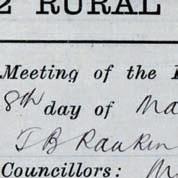 RURAL
Meeting of the
8th day of Ma
J B Rankin
Councillors: M